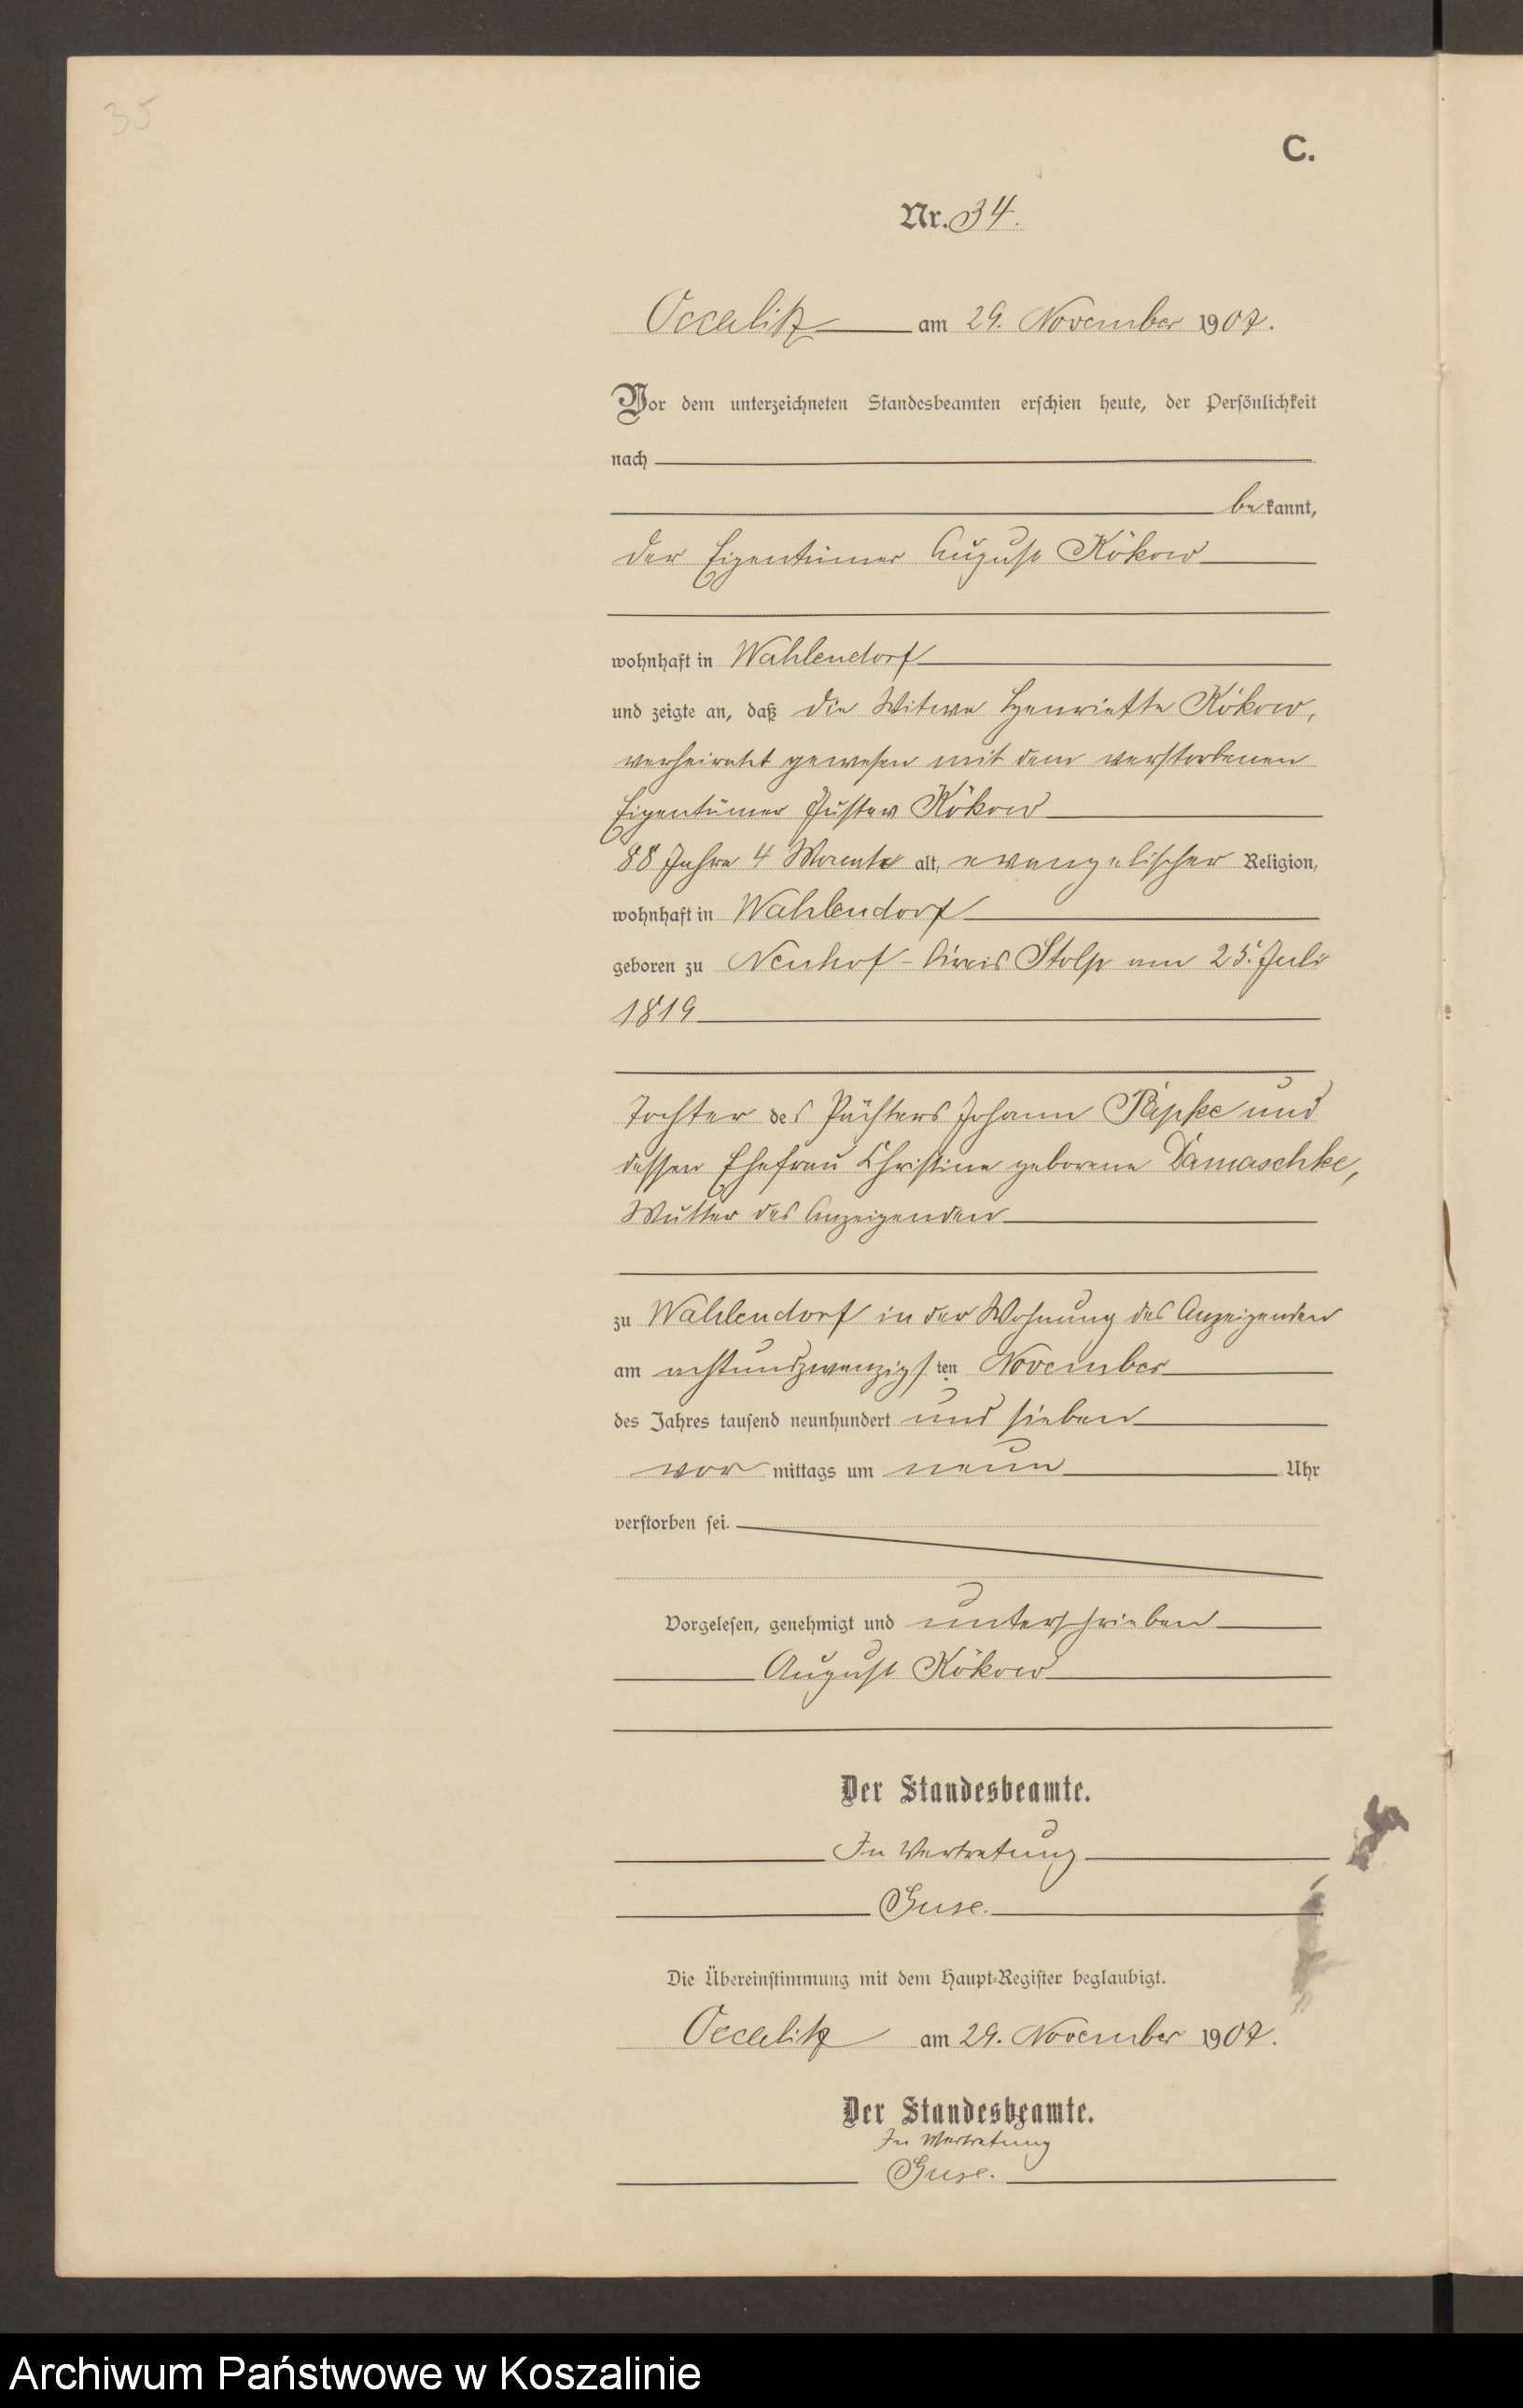 35
C.
Nr. 34.
Occalitz am 29. November 1907.
Vor dem unterzeichneten Standesbeamten erschien heute, der Persönlichkeit
nach
bekannt,
der Eigentümer August Kökow
wohnhaft in Wahlendorf
und zeigte an, daß die Witwe Henriette Kökow,
verheiratet gewesen mit dem verstorbenen
Eigentümer Gustav Kökow
88 Jahre 4 Monate alt, evangelischer Religion,
wohnhaft in Wahlendorf
geboren zu Neuhof - Kreis Stolp am 25. Juli
1819
Tochter des Pächters Johann Papke und
dessen Ehefrau Christine geborene Damaschke,
Mutter des Anzeigenden
zu Wahlendorf in der Wohnung des Anzeigenden
am achtundzwanzigsten November
des Jahres tausend neunhundert und sieben
vor mittags um neun Uhr
verstorben sei.
Vorgelesen, genehmigt und unterschrieben
August Kökow
Der Standesbeamte.
In Vertretung
Guse.
Die Übereinstimmung mit dem Haupt-Register beglaubigt.
Occalitz am 29. November 1907.
Der Standesbeamte.
In Vertretung
Guse.
Archiwum Państwowe w Koszalinie